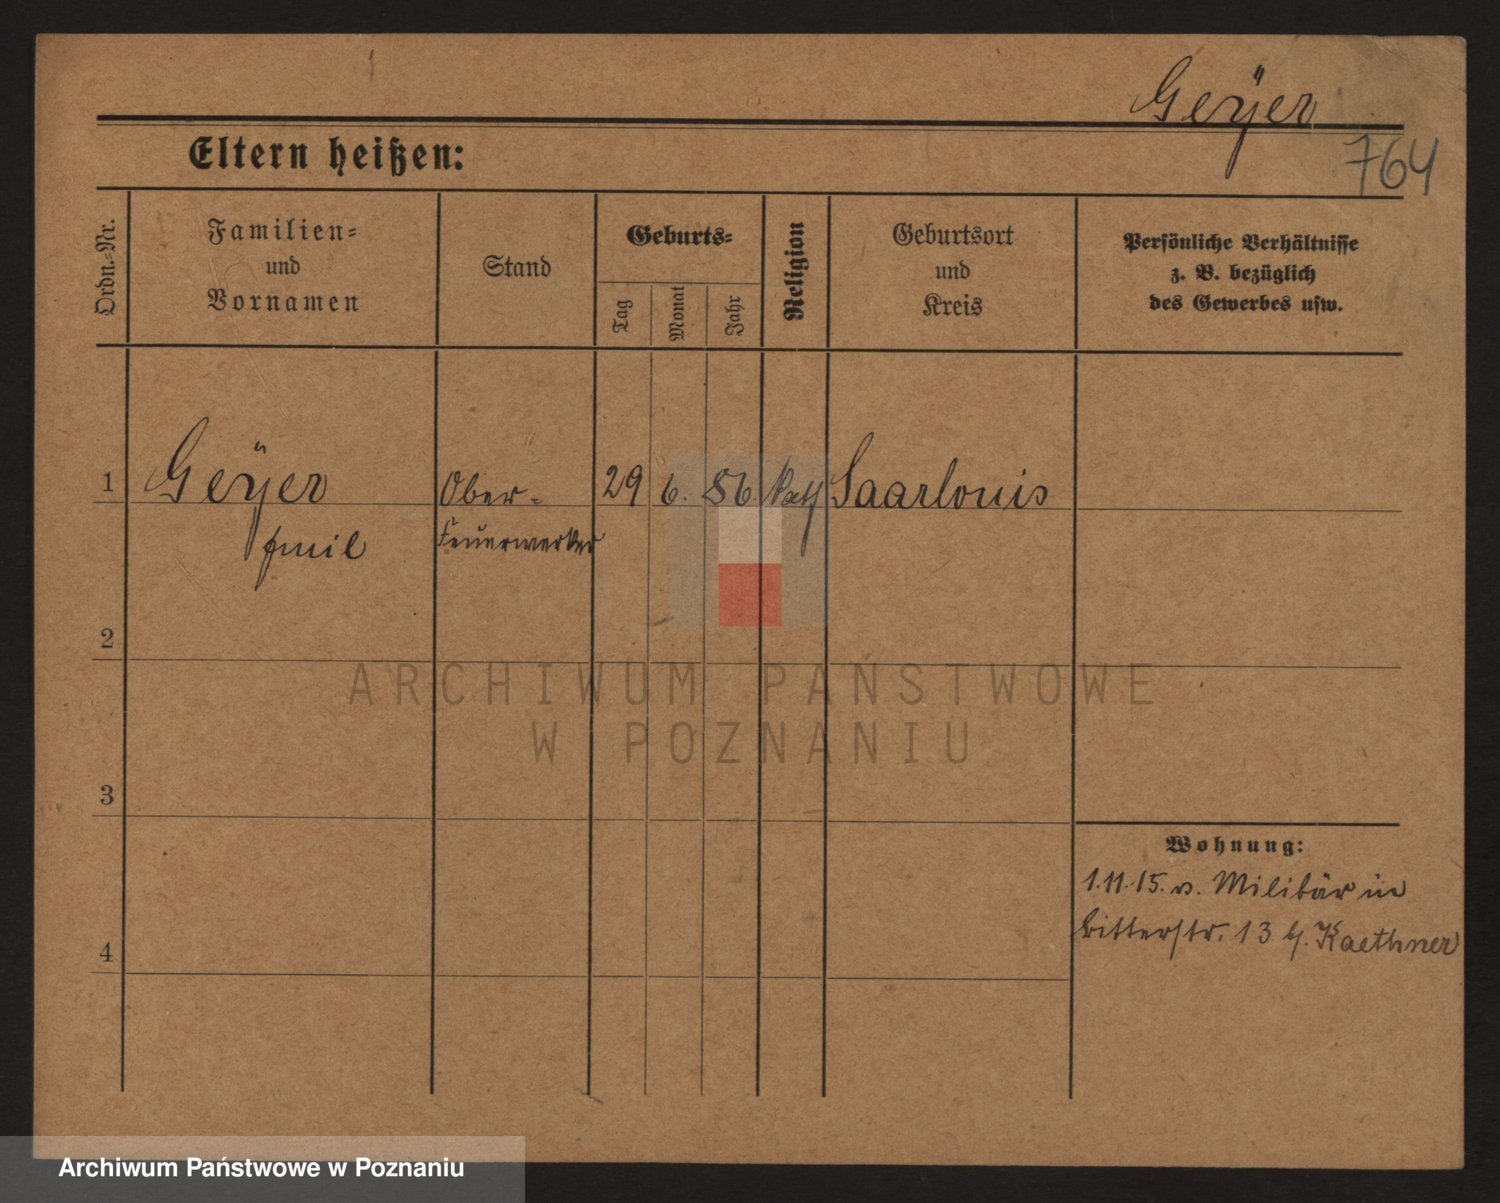 Geÿer
764
Eltern heißen:
Ordn.-Nr.
Familien-
und
Vornamen
Stand
Geburts-
Tag
Monat
Jahr
Religion
Geburtsort
und
Kreis
Persönliche Verhältnisse
z. B. bezüglich
des Gewerbes usw.
1
Geÿer
Emil
Ober-
Feuerwerker
29
6.
86
Kath
Saarlouis
2
ARCHIWUM PAŃSTWOWE
W POZNANIU
3
4
Wohnung:
1.11.15. v. Militär in
Ritterstr. 13 b. Kaethner
Archiwum Państwowe w Poznaniu